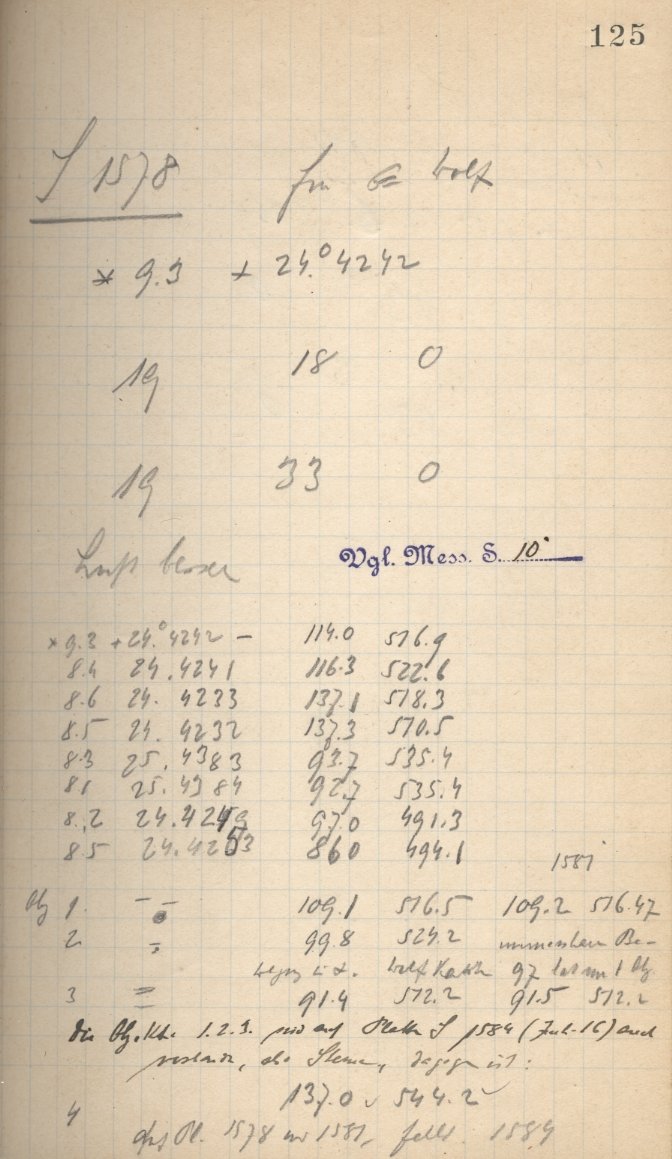 125
S 1578 für Wolf
* 9.3 + 24.°4242
19 18 0
19 33 0
Luft besser
Vgl. Mess. S. 10
* 9.3 +24.°4242 — 114.0 516.9
8.4 24.4241 116.3 522.6
8.6 24. 4233 137.1 518.3
8.5 24. 4232 137.3 510.5
8.3 25. 4383 93.7 535.4
8.1 25. 4384 92.7 535.4
8.2 24.42 97.0 491.3
8.5 24.4253 86.0 494.1
1581
Obj 1. 109.1 516.5 109.2 516.47
2. 99.8 524.2 unmessbar Be-
Wolf 97 1 Obj
3 91.4 512.2 91.5 512.2
die Objekte 1.2.3. sind auf Platte S 1584 (Juli 16) auch
also Sterne, dagegen ist:
4 137.0 544.2
auf Pl. 1578 1581, fehlt 1584